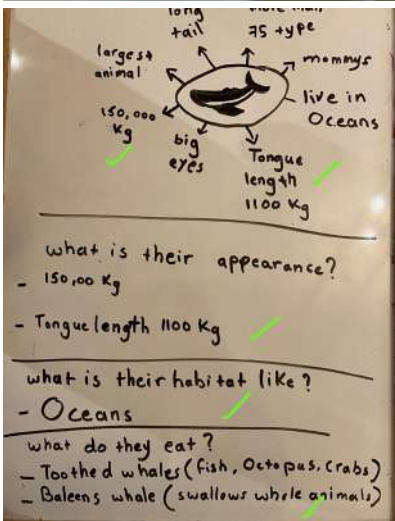 long
tail
75 type
largest
animal
mommys
live in
Oceans
150,000
Kg
big
eyes
Tongue
length
1100 Kg
what is their appearance?
- 150,00 Kg
- Tongue length 1100 Kg
what is their habitat like?
- Oceans
what do they eat?
- Toothed whales (fish, Octopus, crabs)
- Baleens whale (swallows whole animals)